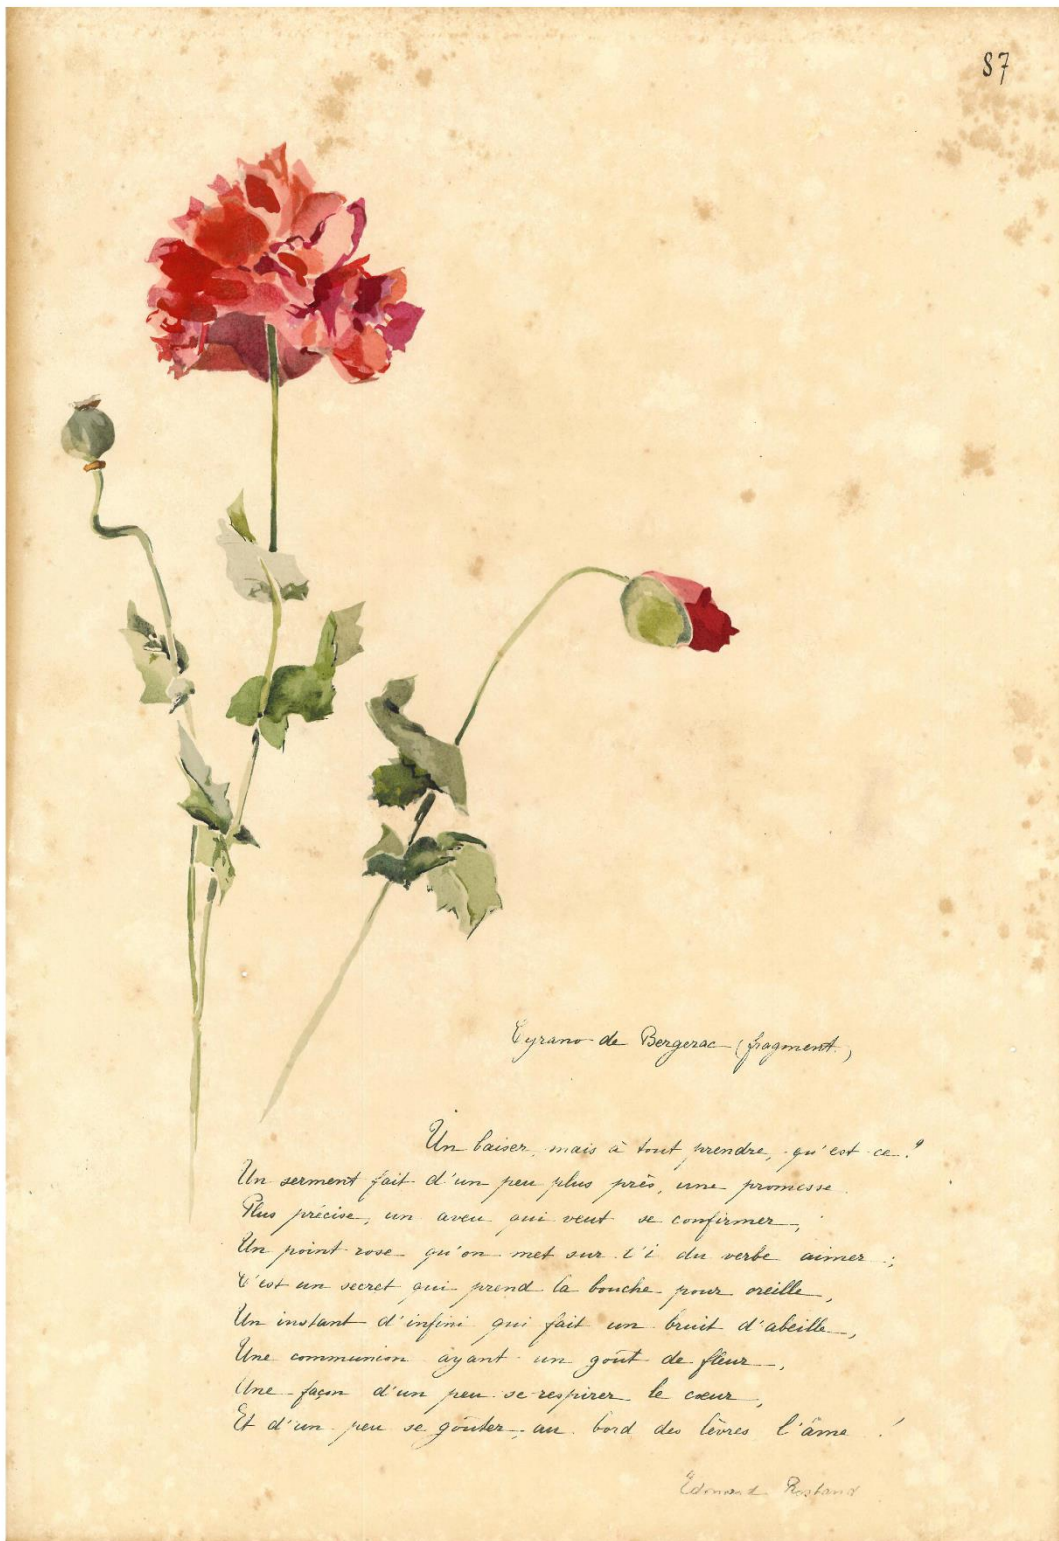 87
Cyrano de Bergerac (fragment.)
Un baiser, mais à tout prendre, qu'est ce?
Un serment fait d'un peu plus près, une promesse
Plus précise, un aveu qui veut se confirmer,
Un point rose qu'on met sur l'i du verbe aimer;
C'est un secret qui prend la bouche pour oreille,
Un instant d'infini qui fait un bruit d'abeille,
Une communion ayant un goût de fleur,
Une façon d'un peu se respirer le cœur,
Et d'un peu se goûter, au bord des lèvres l'âme!
Edmond Rostand